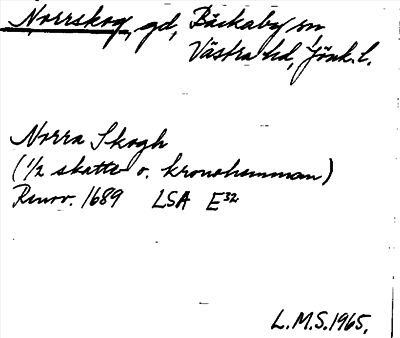 Norrskog, gd, Bäckaby sn
Västra hd, Jönk. l.
Norra Skogh
(1/2 skatte o. kronohemman)
Renov. 1689 LSA E32
L.M.S. 1965.